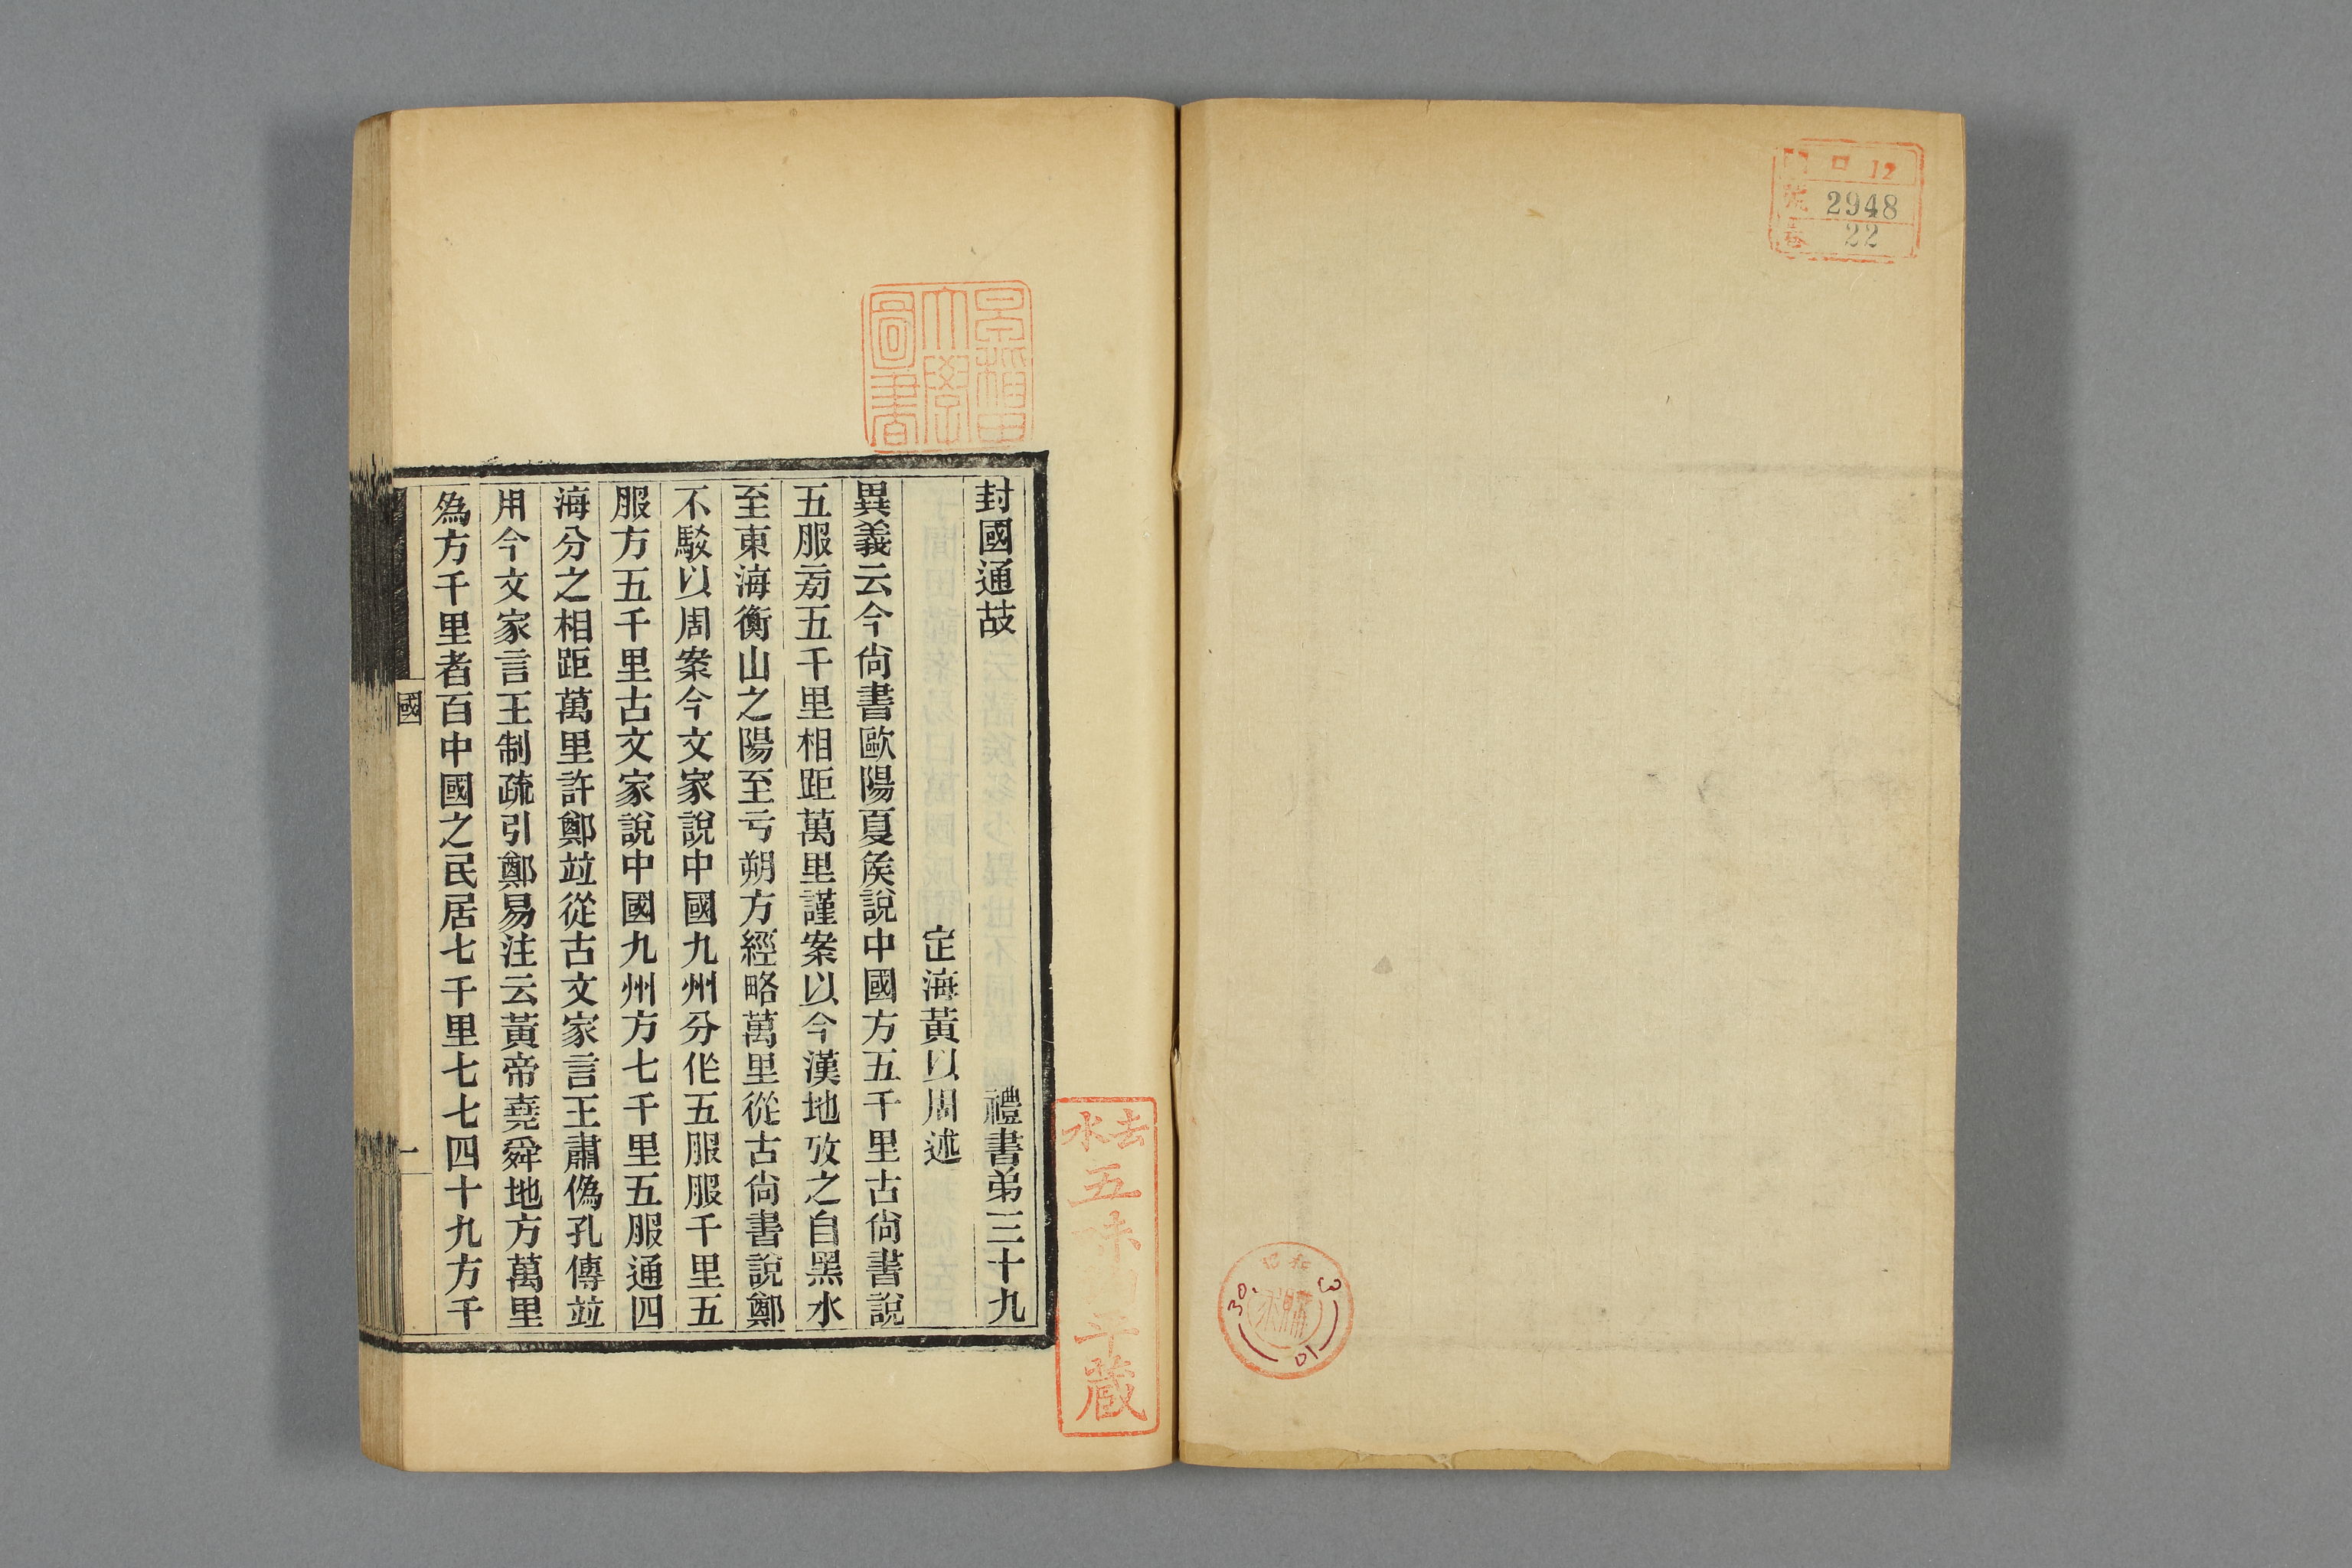 口 12
號 2948
卷 22
封國通故 禮書弟三十九
定海黃以周述
異義云今尙書歐陽夏矦說中國方五千里古尙書說
五服㫄五千里相距萬里謹案以今漢地攷之自黑水
至東海衡山之陽至亏朔方經略萬里從古尙書說鄭
不駁以周案今文家說中國九州分作五服服千里五
服方五千里古文家說中國九州方七千里五服通四
海分之相距萬里許鄭竝從古文家言王肅僞孔傳竝
用今文家言王制疏引鄭易注云黃帝堯舜地方萬里
爲方千里者百中國之民居七千里七七四十九方千
國
一
早稻田
大學
圖書
30. 3
10